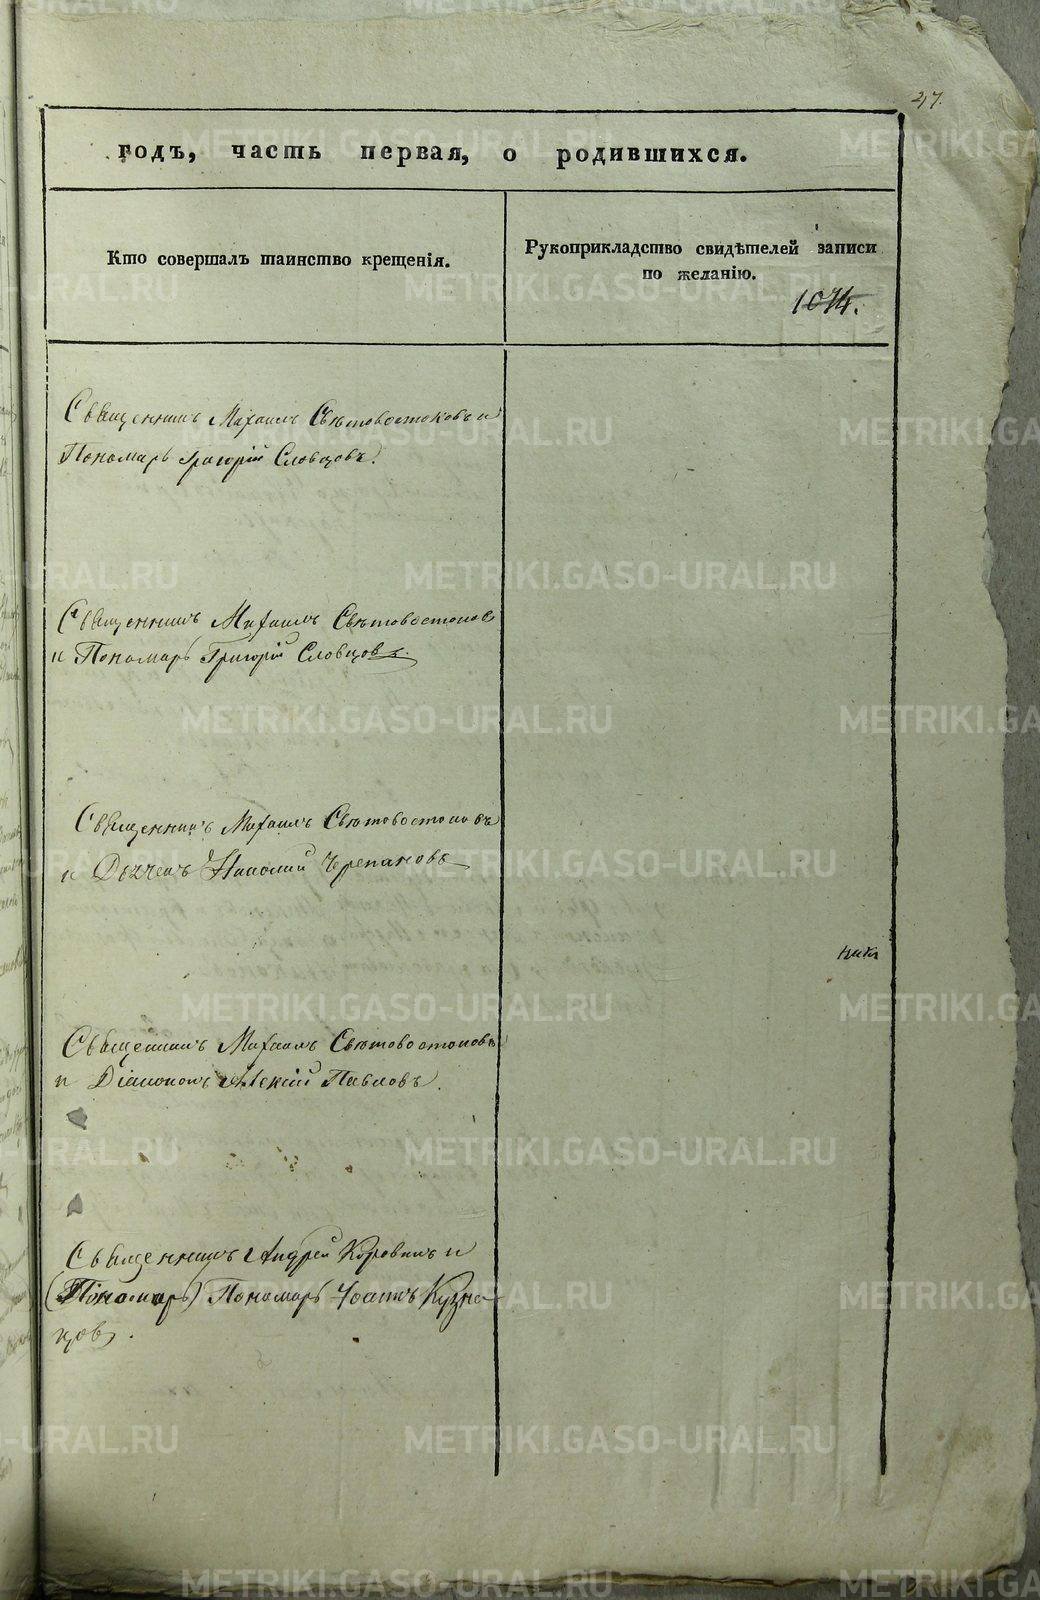 47.
годъ, часть первая, о родившихся.
Кто совершалъ таинство крещенія.
Рукоприкладство свидѣтелей записи
по желанію.
1074.
Священникъ Михаилъ Свѣтовостоковъ и
Пономарь Григорій Словцовъ.
Священникъ Михаилъ Свѣтовостоковъ
и Пономарь Григорій Словцовъ.
Священникъ Михаилъ Свѣтовостоковъ
и Дьячекъ Николай Черепановъ
Священникъ Михаилъ Свѣтовостоковъ
и Діаконъ Алексій Павловъ.
Священникъ Андрей Коровинъ и
(Пономарь) Пономарь Кузне-
цовъ.
METRIKI.GASO-URAL.RU